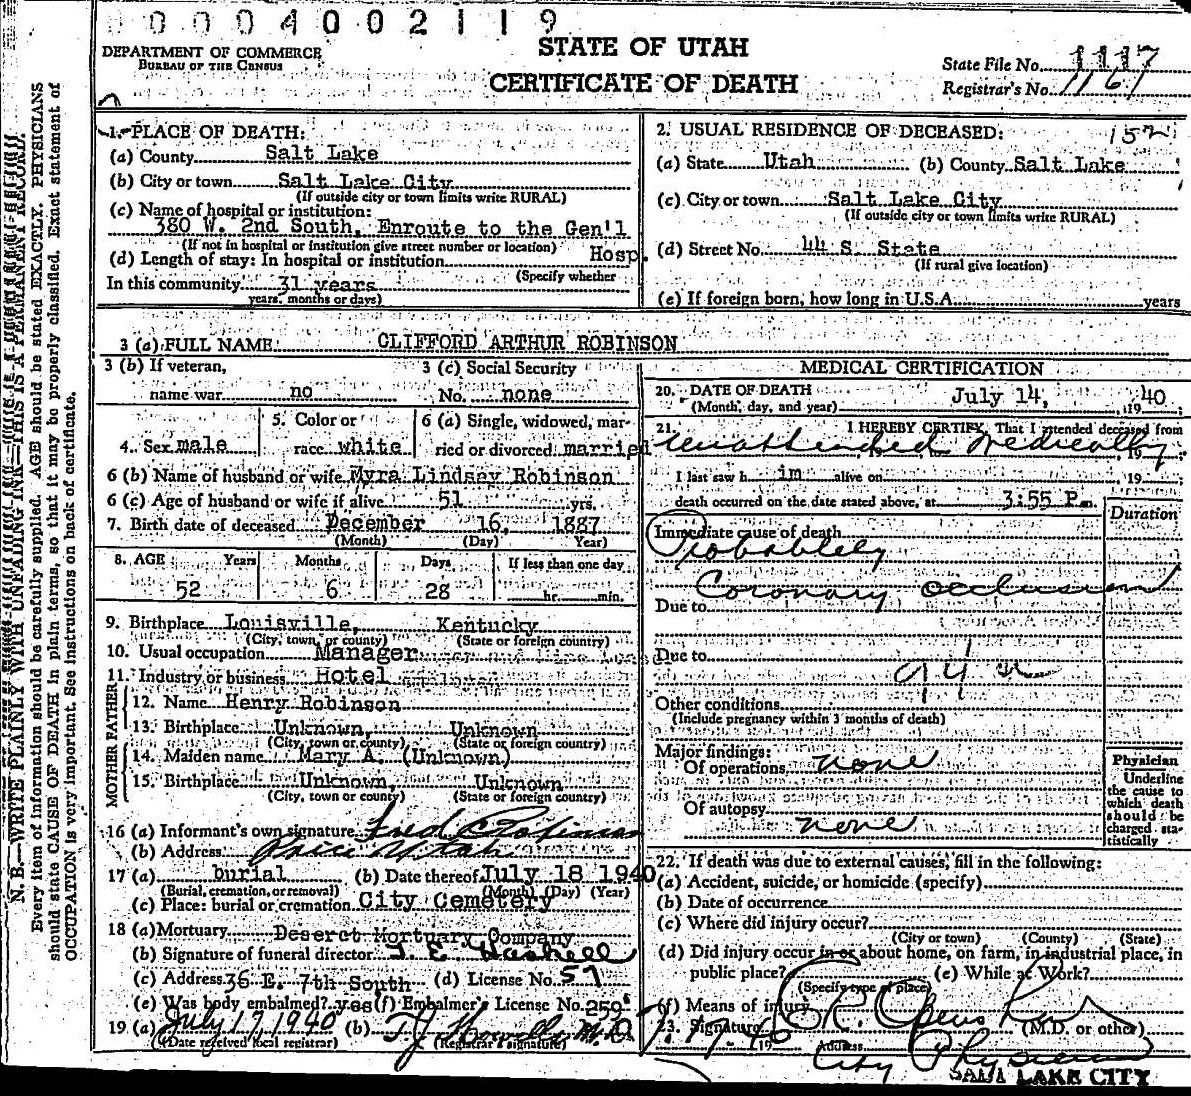 0 0 0 4 0 0 2 1 1 9
DEPARTMENT OF COMMERCE
BUREAU OF THE CENSUS
STATE OF UTAH
CERTIFICATE OF DEATH
State File No. 1117
Registrar's No. 1167
N. B.—WRITE PLAINLY WITH UNFADING INK—THIS IS A PERMANENT RECORD.
Every item of information should be carefully supplied. AGE should be stated EXACTLY. PHYSICIANS
should state CAUSE OF DEATH in plain terms, so that it may be properly classified. Exact statement of
OCCUPATION is very important. See instructions on back of certificate.
1. PLACE OF DEATH:
(a) County Salt Lake
(b) City or town Salt Lake City
(If outside city or town limits write RURAL)
(c) Name of hospital or institution:
380 W. 2nd South, Enroute to the Gen'l
(If not in hospital or institution give street number or location) Hosp.
(d) Length of stay: In hospital or institution
(Specify whether
In this community 31 years
years, months or days)
2. USUAL RESIDENCE OF DECEASED: 152
(a) State Utah (b) County Salt Lake
(c) City or town Salt Lake City
(If outside city or town limits write RURAL)
(d) Street No. 44 S. State
(If rural give location)
(e) If foreign born, how long in U.S.A. years
3 (a) FULL NAME CLIFFORD ARTHUR ROBINSON
3 (b) If veteran,
name war no
3 (c) Social Security
No. none
4. Sex male
5. Color or
race white
6 (a) Single, widowed, mar-
ried or divorced married
6 (b) Name of husband or wife Myra Lindsey Robinson
6 (c) Age of husband or wife if alive 51 yrs.
7. Birth date of deceased December 16, 1887
(Month) (Day) Year)
8. AGE Years Months Days If less than one day
52 6 28 hr. min.
9. Birthplace Louisville, Kentucky
(City, town, or county) (State or foreign country)
10. Usual occupation Manager
11. Industry or business Hotel
FATHER
12. Name Henry Robinson
13. Birthplace Unknown, Unknown
(City, town or county) (State or foreign country)
MOTHER
14. Maiden name Mary A. (Unknown)
15. Birthplace Unknown, Unknown
(City, town or county) (State or foreign country)
16 (a) Informant's own signature Fred C Robinson
(b) Address Price Utah
17 (a) burial (b) Date thereof July 18 1940
(Burial, cremation, or removal) (Month) (Day) (Year)
(c) Place: burial or cremation City Cemetery
18 (a) Mortuary Deseret Mortuary Company
(b) Signature of funeral director J. E. Haskell
(c) Address 36 E. 7th South (d) License No. 57
(e) Was body embalmed? yes (f) Embalmer's License No. 259
19 (a) July 17, 1940 (b) T. J. Howells M.D.
(Date received local registrar) (Registrar's signature)
MEDICAL CERTIFICATION
20. DATE OF DEATH July 14, 1940
(Month, day, and year)
21. I HEREBY CERTIFY, That I attended deceased from
Unattended Medically 19
I last saw h im alive on 19
death occurred on the date stated above, at 3:55 P.m.
Duration
Immediate cause of death
Probablely
Coronary occlusion
Due to
Due to
94 a
Other conditions
(Include pregnancy within 3 months of death)
Major findings:
Of operations none
Of autopsy none
Physician
Underline
the cause to
which death
should be
charged sta-
tistically
22. If death was due to external causes, fill in the following:
(a) Accident, suicide, or homicide (specify)
(b) Date of occurrence
(c) Where did injury occur?
(City or town) (County) (State)
(d) Did injury occur in or about home, on farm, in industrial place, in
public place? (e) While at Work?
(Specify type of place)
(f) Means of injury
23. Signature (M.D. or other)
7-17-40 19 Address City Physician
SALT LAKE CITY